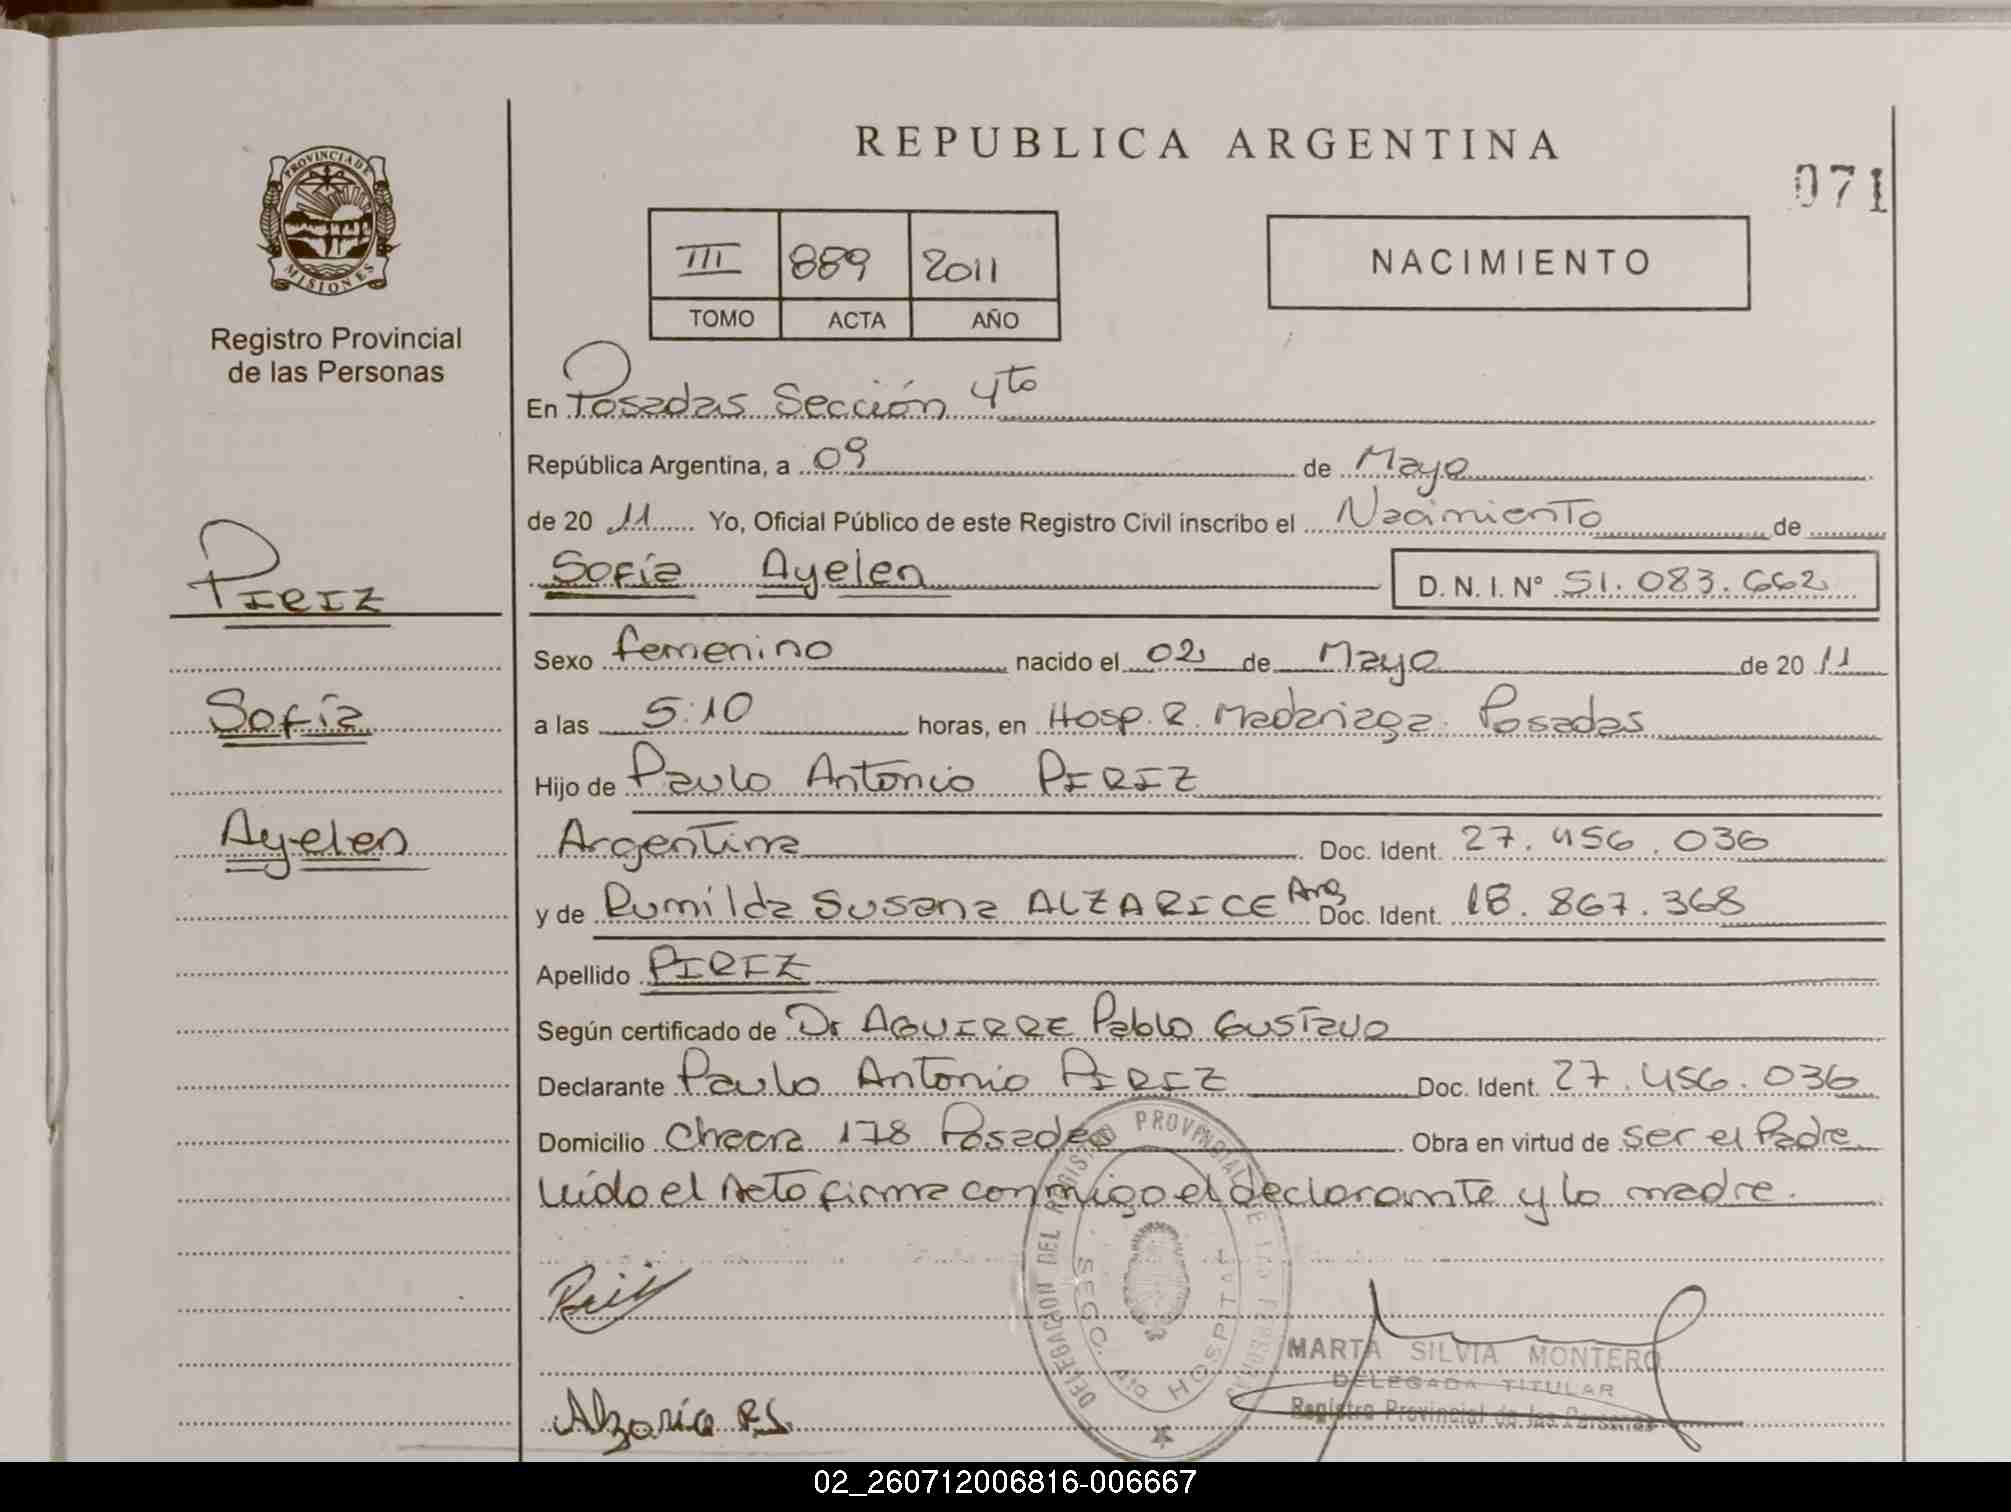 REPUBLICA ARGENTINA
071
PROVINCIA DE
MISIONES
Registro Provincial
de las Personas
III 889 2011
TOMO ACTA AÑO
NACIMIENTO
En Posadas Sección 4to
República Argentina, a 09 de Mayo
de 20 11 Yo, Oficial Público de este Registro Civil inscribo el Nacimiento de
Sofía Ayelen D. N. I. Nº 51.083.662
PIRIZ
Sofía
Ayelen
Sexo femenino nacido el 02 de Mayo de 20 11
a las 5:10 horas, en Hosp. R. Madariaga. Posadas
Hijo de Paulo Antonio PIRIZ
Argentina Doc. Ident. 27.456.036
y de Rumilda Susana ALZARICE Arg Doc. Ident. 18.867.368
Apellido PIRIZ
Según certificado de Dr AGUIRRE Pablo Gustavo
Declarante Paulo Antonio PIRIZ Doc. Ident. 27.456.036
Domicilio Chacra 178 Posadas Obra en virtud de ser el Padre
Leído el Acto firma conmigo el declarante y la madre.
DELEGACION DEL REGISTRO PROVINCIAL DE LAS PERSONAS
SECC. 4to HOSPITAL
MARTA SILVIA MONTERO
DELEGADA TITULAR
Registro Provincial de las Personas
02_260712006816-006667